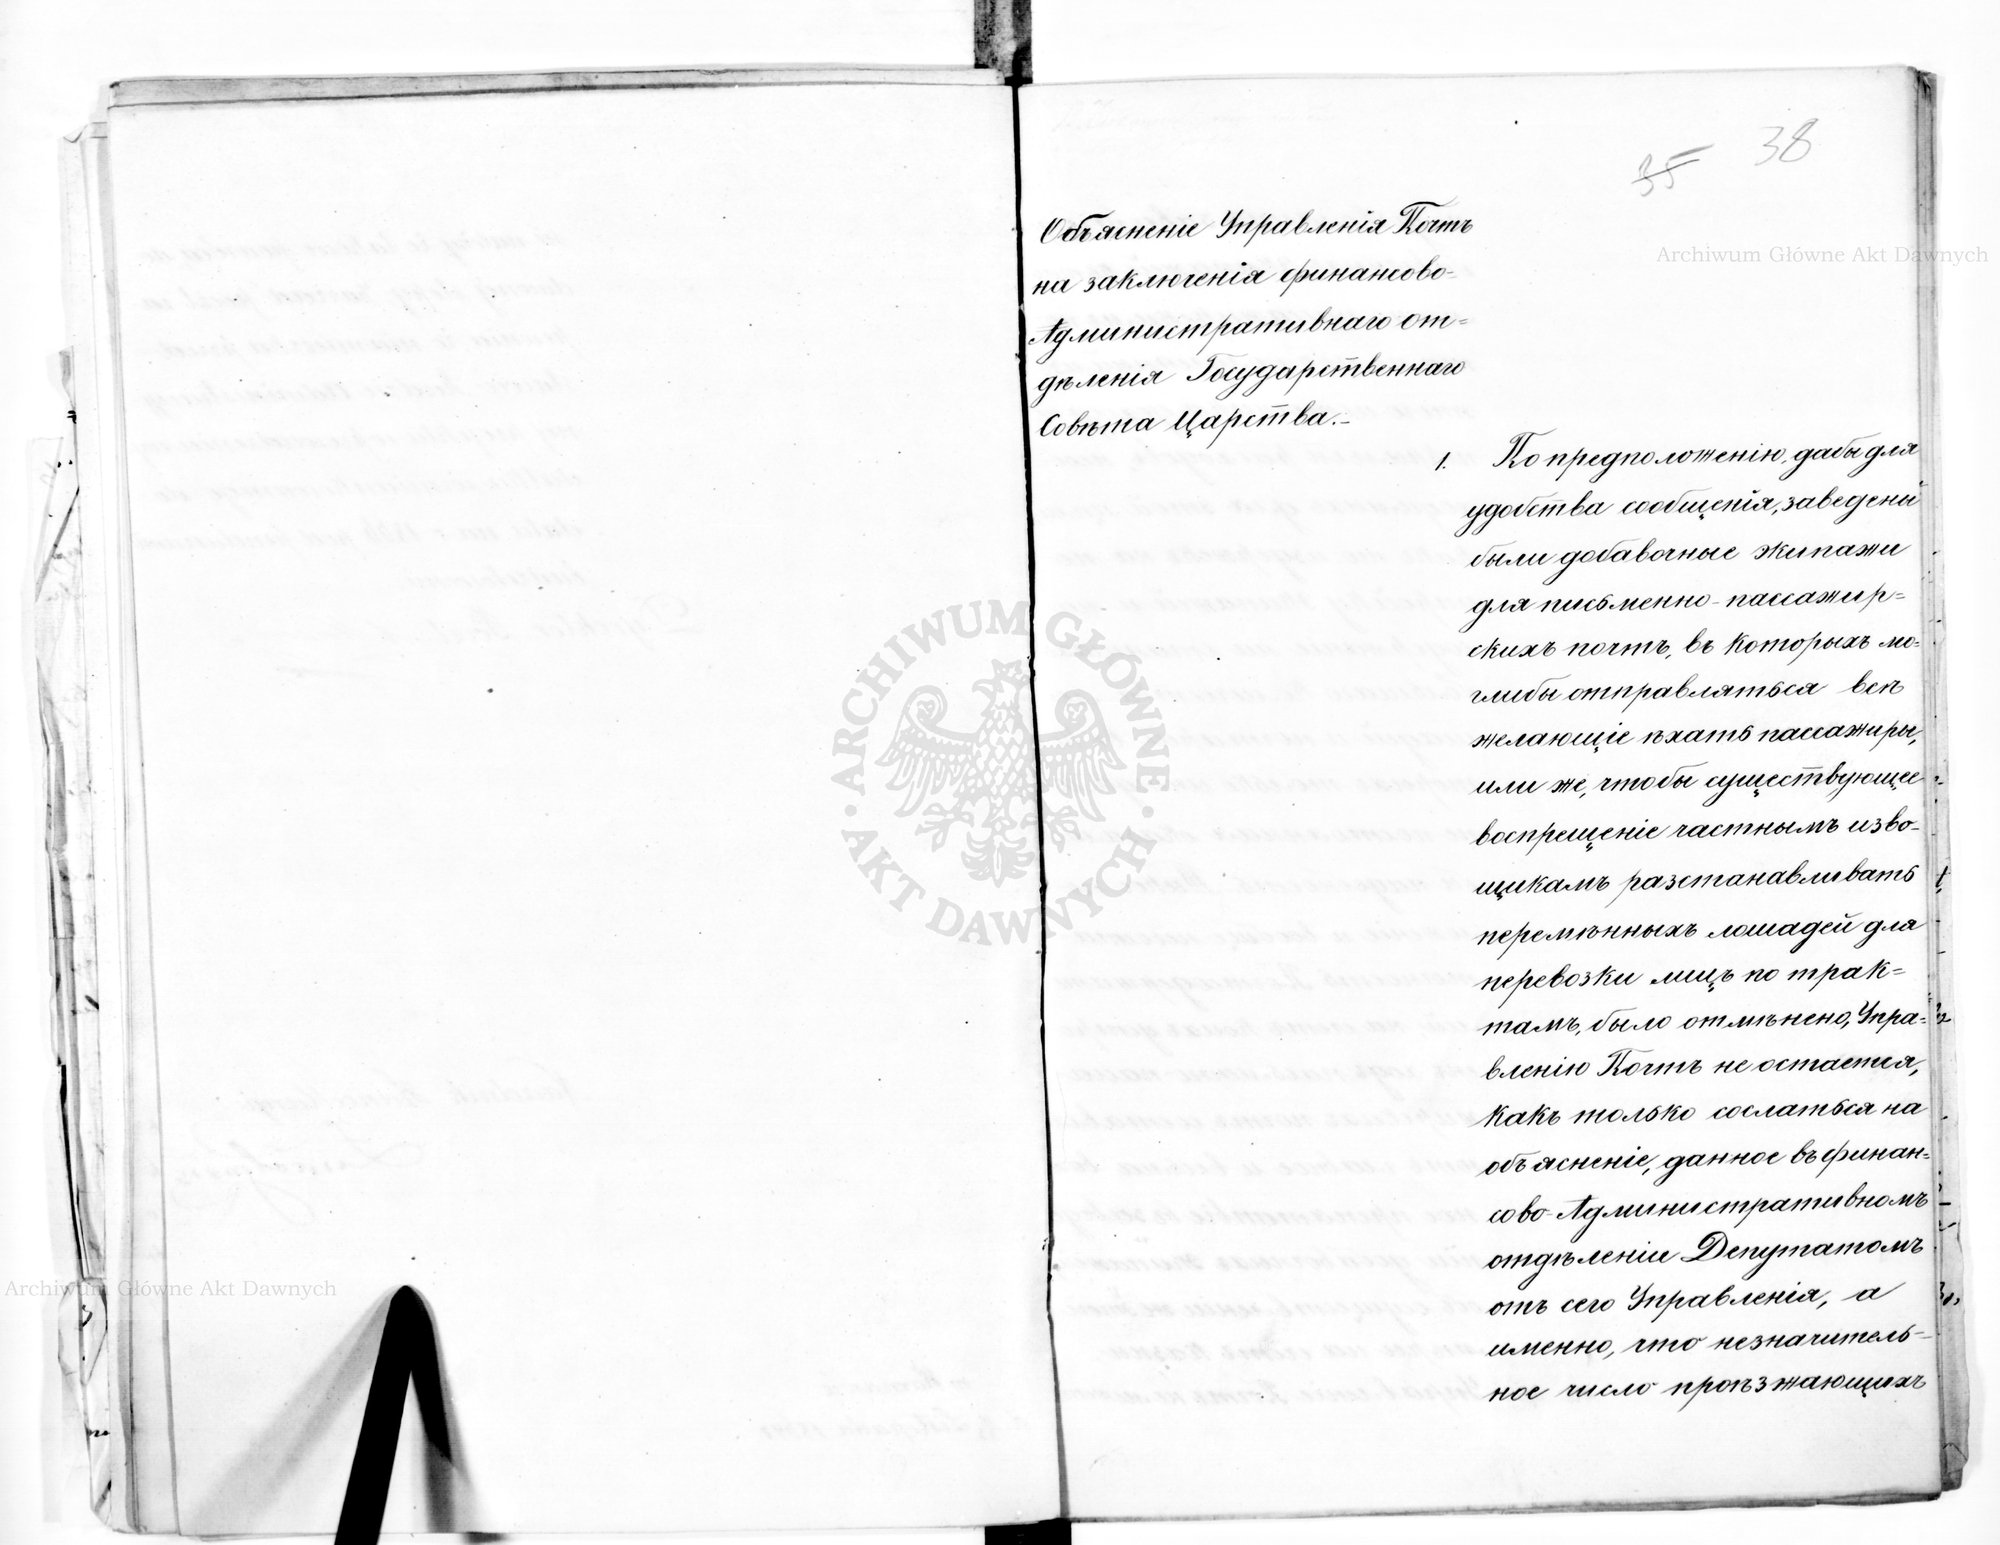 35 38
Объясненіе Управленія Почтъ
на заключенія финансово-
Административнаго от=
дѣленія Государственнаго
Совѣта Царства.-
1. По предположенію, дабы для
удобства сообщенія, заведены
были добавочные экипажи
для письменно-пассажир=
скихъ почтъ, въ которыхъ мо=
глибы отправляться всѣ
желающіе ѣхать пассажиры,
или же, чтобы существующее
воспрещеніе частнымъ изво-
щикамъ разстанавливать
перемѣнныхъ лошадей для
перевозки лицъ по трак=
тамъ, было отмѣнено, Упра=
вленію Почтъ не остается,
какъ только сослаться на
объясненіе, данное въ финан=
сово-Административномъ
отдѣленіи Депутатомъ
отъ сего Управленія, а
именно, что незначитель-
ное число проѣзжающихъ
Archiwum Główne Akt Dawnych
ARCHIWUM GŁÓWNE · AKT DAWNYCH ·
Archiwum Główne Akt Dawnych